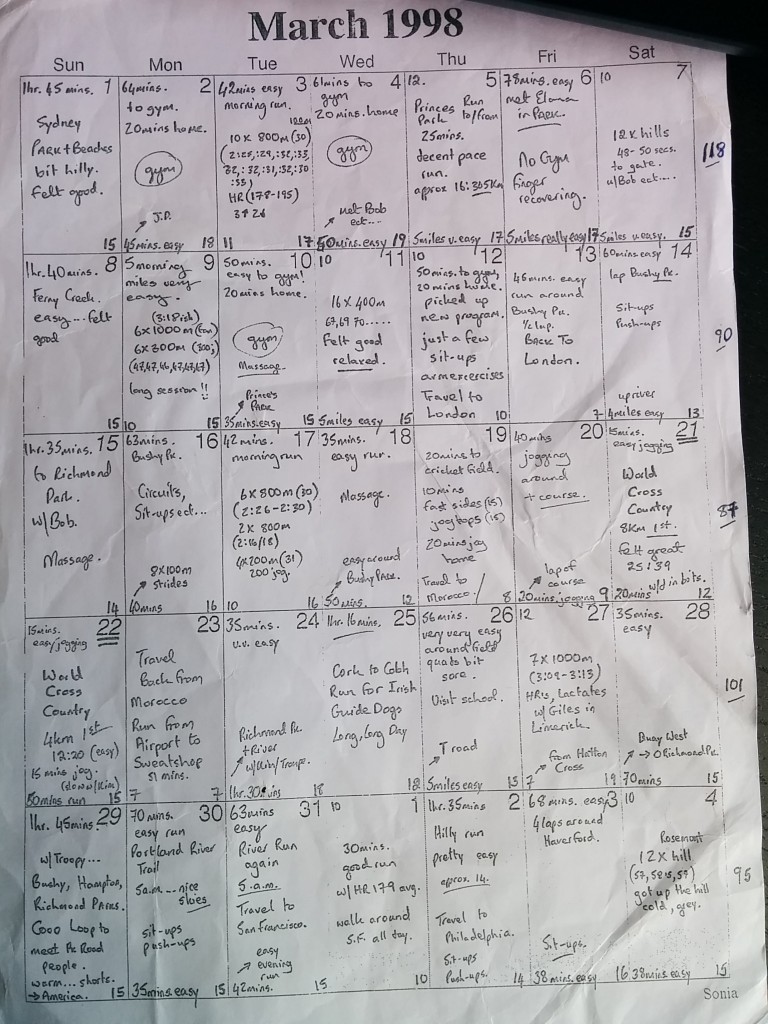 March 1998
Sun Mon Tue Wed Thu Fri Sat
1hr. 45 mins. 1
Sydney
Park + Beaches
bit hilly.
felt good.
15
64mins. 2
to gym.
20mins home.
gym
J.P.
45mins. easy 18
42mins easy 3
morning run.
10 x 800m (30)
HR (178-195)
11 17
61mins to 4
gym
20mins. home
gym
met Bob
ect....
50mins. easy 19
12. 5
Princes Run
Park to/from
25mins.
decent pace
run.
5miles v. easy 17
78mins. easy 6
met Elana
in Park.
No Gym
finger
recovering.
5miles really easy 17
10 7
12 x hills
48-50 secs.
to gate.
w/Bob ect....
5miles v. easy. 15
118
1hr. 40mins. 8
Ferny Creek.
easy... felt
good
15
5morning 9
miles very
easy.
(3:18ish)
6x1000m
6x300m
long session !!
10 15
50mins. 10
easy to gym!
20mins home.
gym
Massage.
Prince's
Park
35mins. easy 15
10 11
16 x 400m
67,69 70.....
Felt good
relaxed.
5miles easy 15
10 12
50mins. to gym,
20 mins home.
picked up
new program.
just a few
sit-ups
arm exercises
Travel to
London 10
13
45mins. easy
run around
Bushy Pk.
1/2 lap.
Back To
London.
7
60mins easy 14
lap Bushy Pk.
Sit-ups
Push-ups
upriver
4miles easy 13
90
1hr. 35mins. 15
to Richmond
Park.
w/Bob.
Massage.
14
63mins. 16
Bushy Pk.
Circuits,
Sit-ups ect...
8x100m
strides
40mins 16
42mins. 17
morning run
6 x 800m (30)
(2:26-2:30)
2 x 800m
(2:16/18)
4x200m (31)
200 jog.
10 16
35mins. 18
easy run.
Massage.
easy around
Bushy Park.
50mins. 12
19
20mins to
cricket field.
10mins
fast sides (15)
jog tops (15)
20mins jog
home
Travel to
Morocco! 8
40mins 20
jogging
around
+ course.
lap of
course
20mins. jogging 9
15mins. 21
easy jogging
World
Cross
Country
8Km 1st.
felt great
25:39
w/d in bits.
20mins 12
87
15mins. 22
easy jogging
World
Cross
Country
4km 1st
12:20 (easy)
15 mins jog.
50mins run 15
23
Travel
Back from
Morocco
Run from
Airport to
Sweatshop
51 mins.
7 7
35mins. 24
v.v. easy
Richmond Pk.
+ River
1hr. 30mins 18
1hr. 16mins. 25
Cork to Cobh
Run For Irish
Guide Dogs
Long, Long Day
12
56mins. 26
very very easy
around field
quads bit
sore.
Visit school.
T road
5miles easy 13
12 27
7 x 1000m
(3:09-3:13)
HR's, Lactates
w/ Giles in
Limerick.
from Hatton
Cross
7 19
35mins. 28
easy
Busy West
Richmond Pk.
70mins 15
101
1hr. 45mins. 29
w/Troopy...
Bushy, Hampton,
Richmond Parks.
Good Loop to
meet Pk Road
people.
warm... shorts.
→ America. 15
70mins. 30
easy run
Portland River
Trail
5a.m... nice
skies
sit-ups
push-ups
35mins. easy 15
63mins 31
easy
River Run
again
5.a.m.
Travel to
San Francisco.
easy
evening
run
42mins. 15
10 1
30mins.
good run
w/HR 179 avg.
walk around
S.F. all day.
10
1hr. 35mins 2
Hilly run
pretty easy
approx. 14.
Travel to
Philadelphia.
Sit-ups
Push-ups. 14
68mins. easy 3
4 laps around
Haverford.
Sit-ups.
38mins. easy 16
10 4
Rosemont
12 x hill
got up the hill
cold, grey.
38mins easy 15
95
Sonia